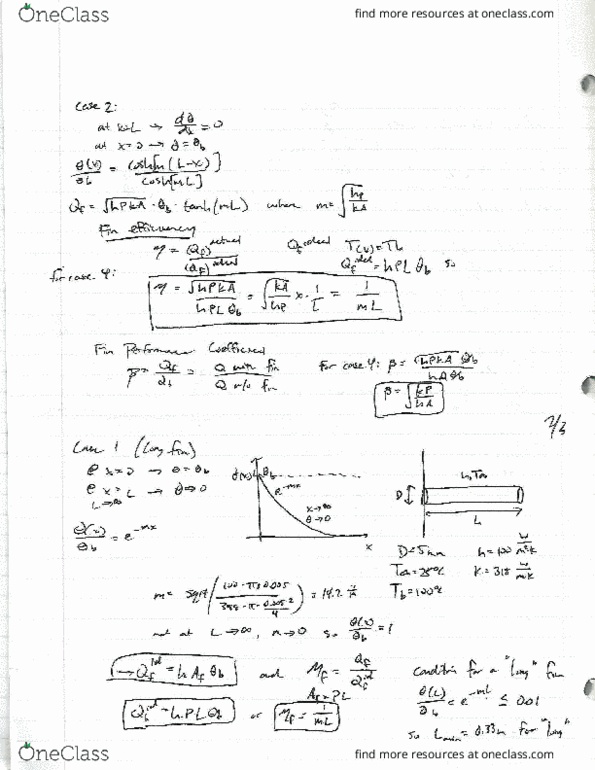 OneClass
find more resources at oneclass.com
Case 2:
at x=L → dθ/dx = 0
at x=0 → θ = θb
θ(x)/θb = cosh[m(L-x)]/cosh[mL]
Qf = √hPkA · θb · tanh(mL) where m = √hP/kA
Fin efficiency
η = (Qf)actual/(Qf)ideal Qf ideal T(x)=Tb
Qf ideal = hPLθb so
for case 4:
η = √hPkA/hPLθb = √kA/hP x · 1/L = 1/mL
Fin Performance Coefficient
β = Qf/Qb = Q with fin/Q w/o fin for case 4: β = √hPkA θb/hAθb
β = √kP/hA
2/3
Case 1 (long fin)
@ x=0 → θ=θb
@ x=L → θ→0
L→∞
θ(x)/θb = e^-mx
θ(x) θb
e^-mx
x→∞
θ→0
x
h, T∞
D
L
D=5mm h=100 W/m²k
T∞=25°C
Tb=100°C
m = sqrt(100·π·0.005/398·π·0.005²/4) = 14.2
not at L→∞, m→0 so θ(x)/θb = 1
→ Qf id = hAfθb and ηf = Qf/Qf id
Af=PL
hPLθb or ηf = 1/mL
condition for a "long" fin
θ(L)/θb = e^-mL ≤ 0.01
so Lmin = 0.33m for "long"
OneClass
find more resources at oneclass.com